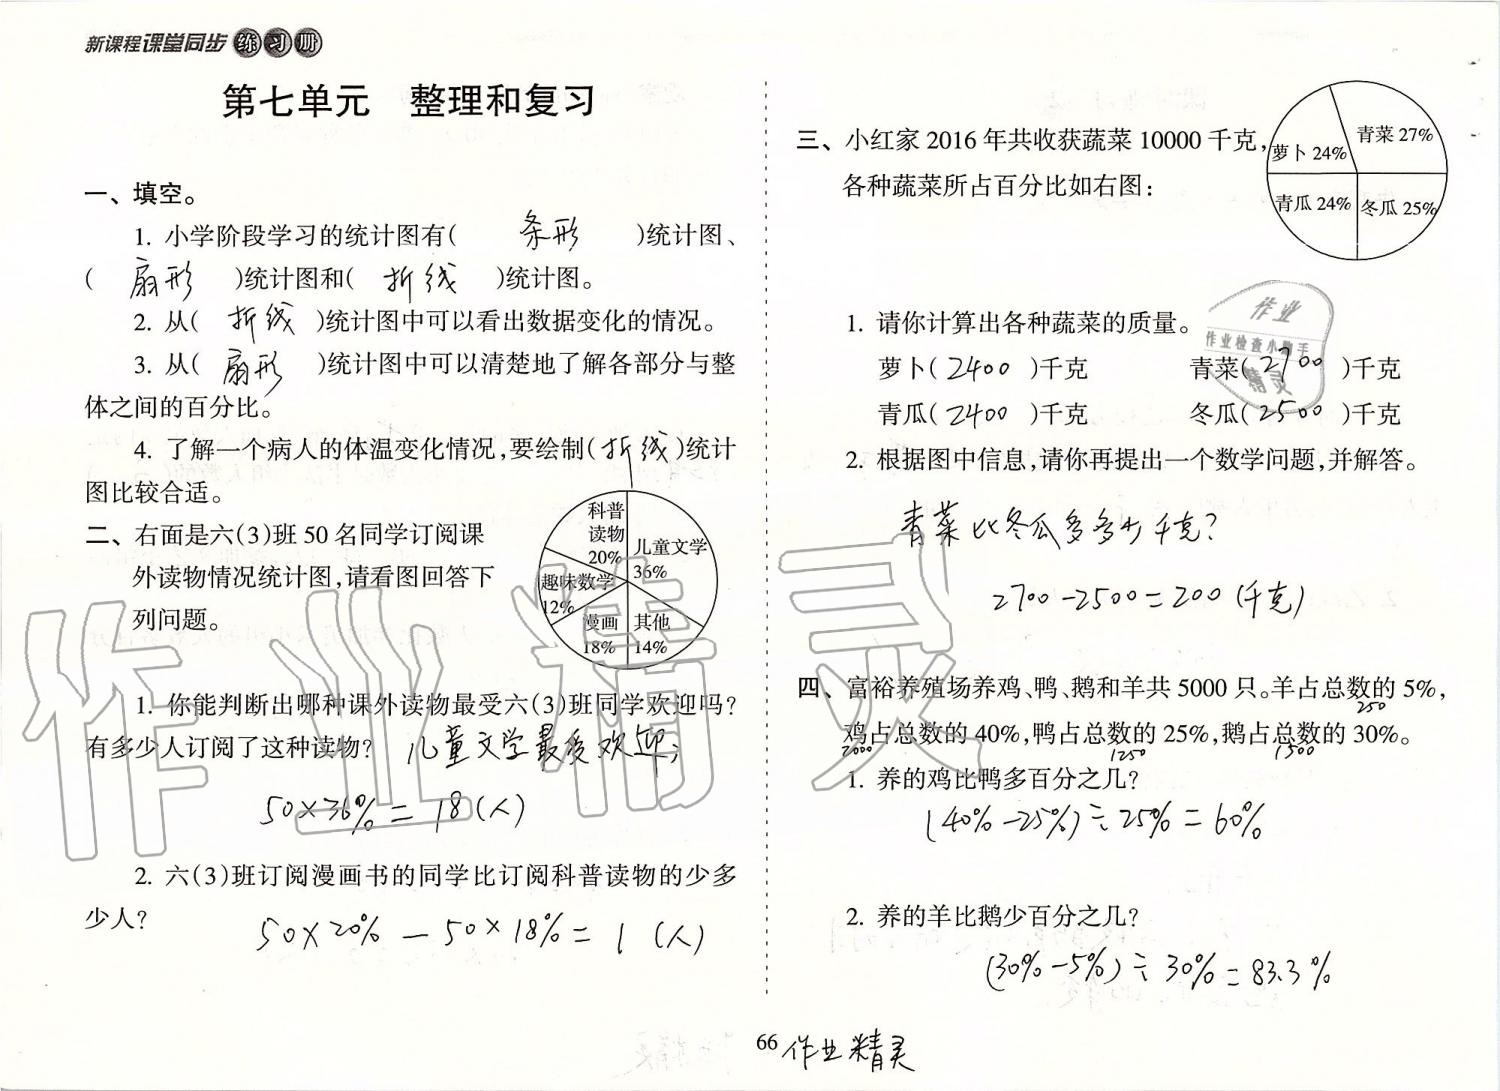 新课程课堂同步练习册
第七单元 整理和复习
一、填空。
1. 小学阶段学习的统计图有( 条形 )统计图、
( 扇形 )统计图和( 折线 )统计图。
2. 从( 折线 )统计图中可以看出数据变化的情况。
3. 从( 扇形 )统计图中可以清楚地了解各部分与整
体之间的百分比。
4. 了解一个病人的体温变化情况,要绘制(折线)统计
图比较合适。
二、右面是六(3)班 50 名同学订阅课
外读物情况统计图,请看图回答下
列问题。
科普
读物
20%
儿童文学
36%
趣味数学
12%
漫画
18%
其他
14%
1. 你能判断出哪种课外读物最受六(3)班同学欢迎吗?
有多少人订阅了这种读物? 儿童文学最受欢迎;
50×36%=18(人)
2. 六(3)班订阅漫画书的同学比订阅科普读物的少多
少人?
50×20%-50×18%=1(人)
三、小红家 2016 年共收获蔬菜 10000 千克,
各种蔬菜所占百分比如右图:
萝卜 24%
青菜 27%
青瓜 24%
冬瓜 25%
1. 请你计算出各种蔬菜的质量。
萝卜( 2400 )千克 青菜( 2700 )千克
青瓜( 2400 )千克 冬瓜( 2500 )千克
2. 根据图中信息,请你再提出一个数学问题,并解答。
青菜比冬瓜多多少千克?
2700-2500=200(千克)
四、富裕养殖场养鸡、鸭、鹅和羊共 5000 只。羊占总数的 5%,
250
鸡占总数的 40%,鸭占总数的 25%,鹅占总数的 30%。
2000 1250 1500
1. 养的鸡比鸭多百分之几?
(40%-25%)÷25%=60%
2. 养的羊比鹅少百分之几?
(30%-5%)÷30%=83.3%
66 作业精灵
作业精灵
作业
作业检查小助手
精灵